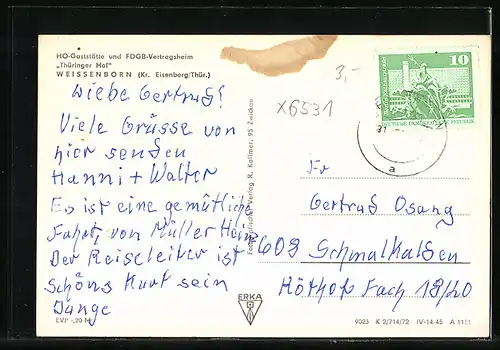 HO-Gaststätte und FDGB-Vertragsheim
„Thüringer Hof"
WEISSENBORN (Kr. Eisenberg/Thür.)
Liebe Gertrud!
Viele Grüsse von
hier senden
Hanni + Walter
Es ist eine gemütlich
Fahrt, von Müller Heinz
Der Reiseleiter ist
Schöns Kurt sein
Junge
EVP -,20 M
R. Kallmer, 95 Zwickau
ERKA
3,-
X6531
10
DEUTSCHE DEMOKRATISCHE REPUBLIK
a
Fr
Gertrud Osang
608 Schmalkalden
Röthof Fach 18/20
9023 K 2/714/72 IV-14-45 A 1151